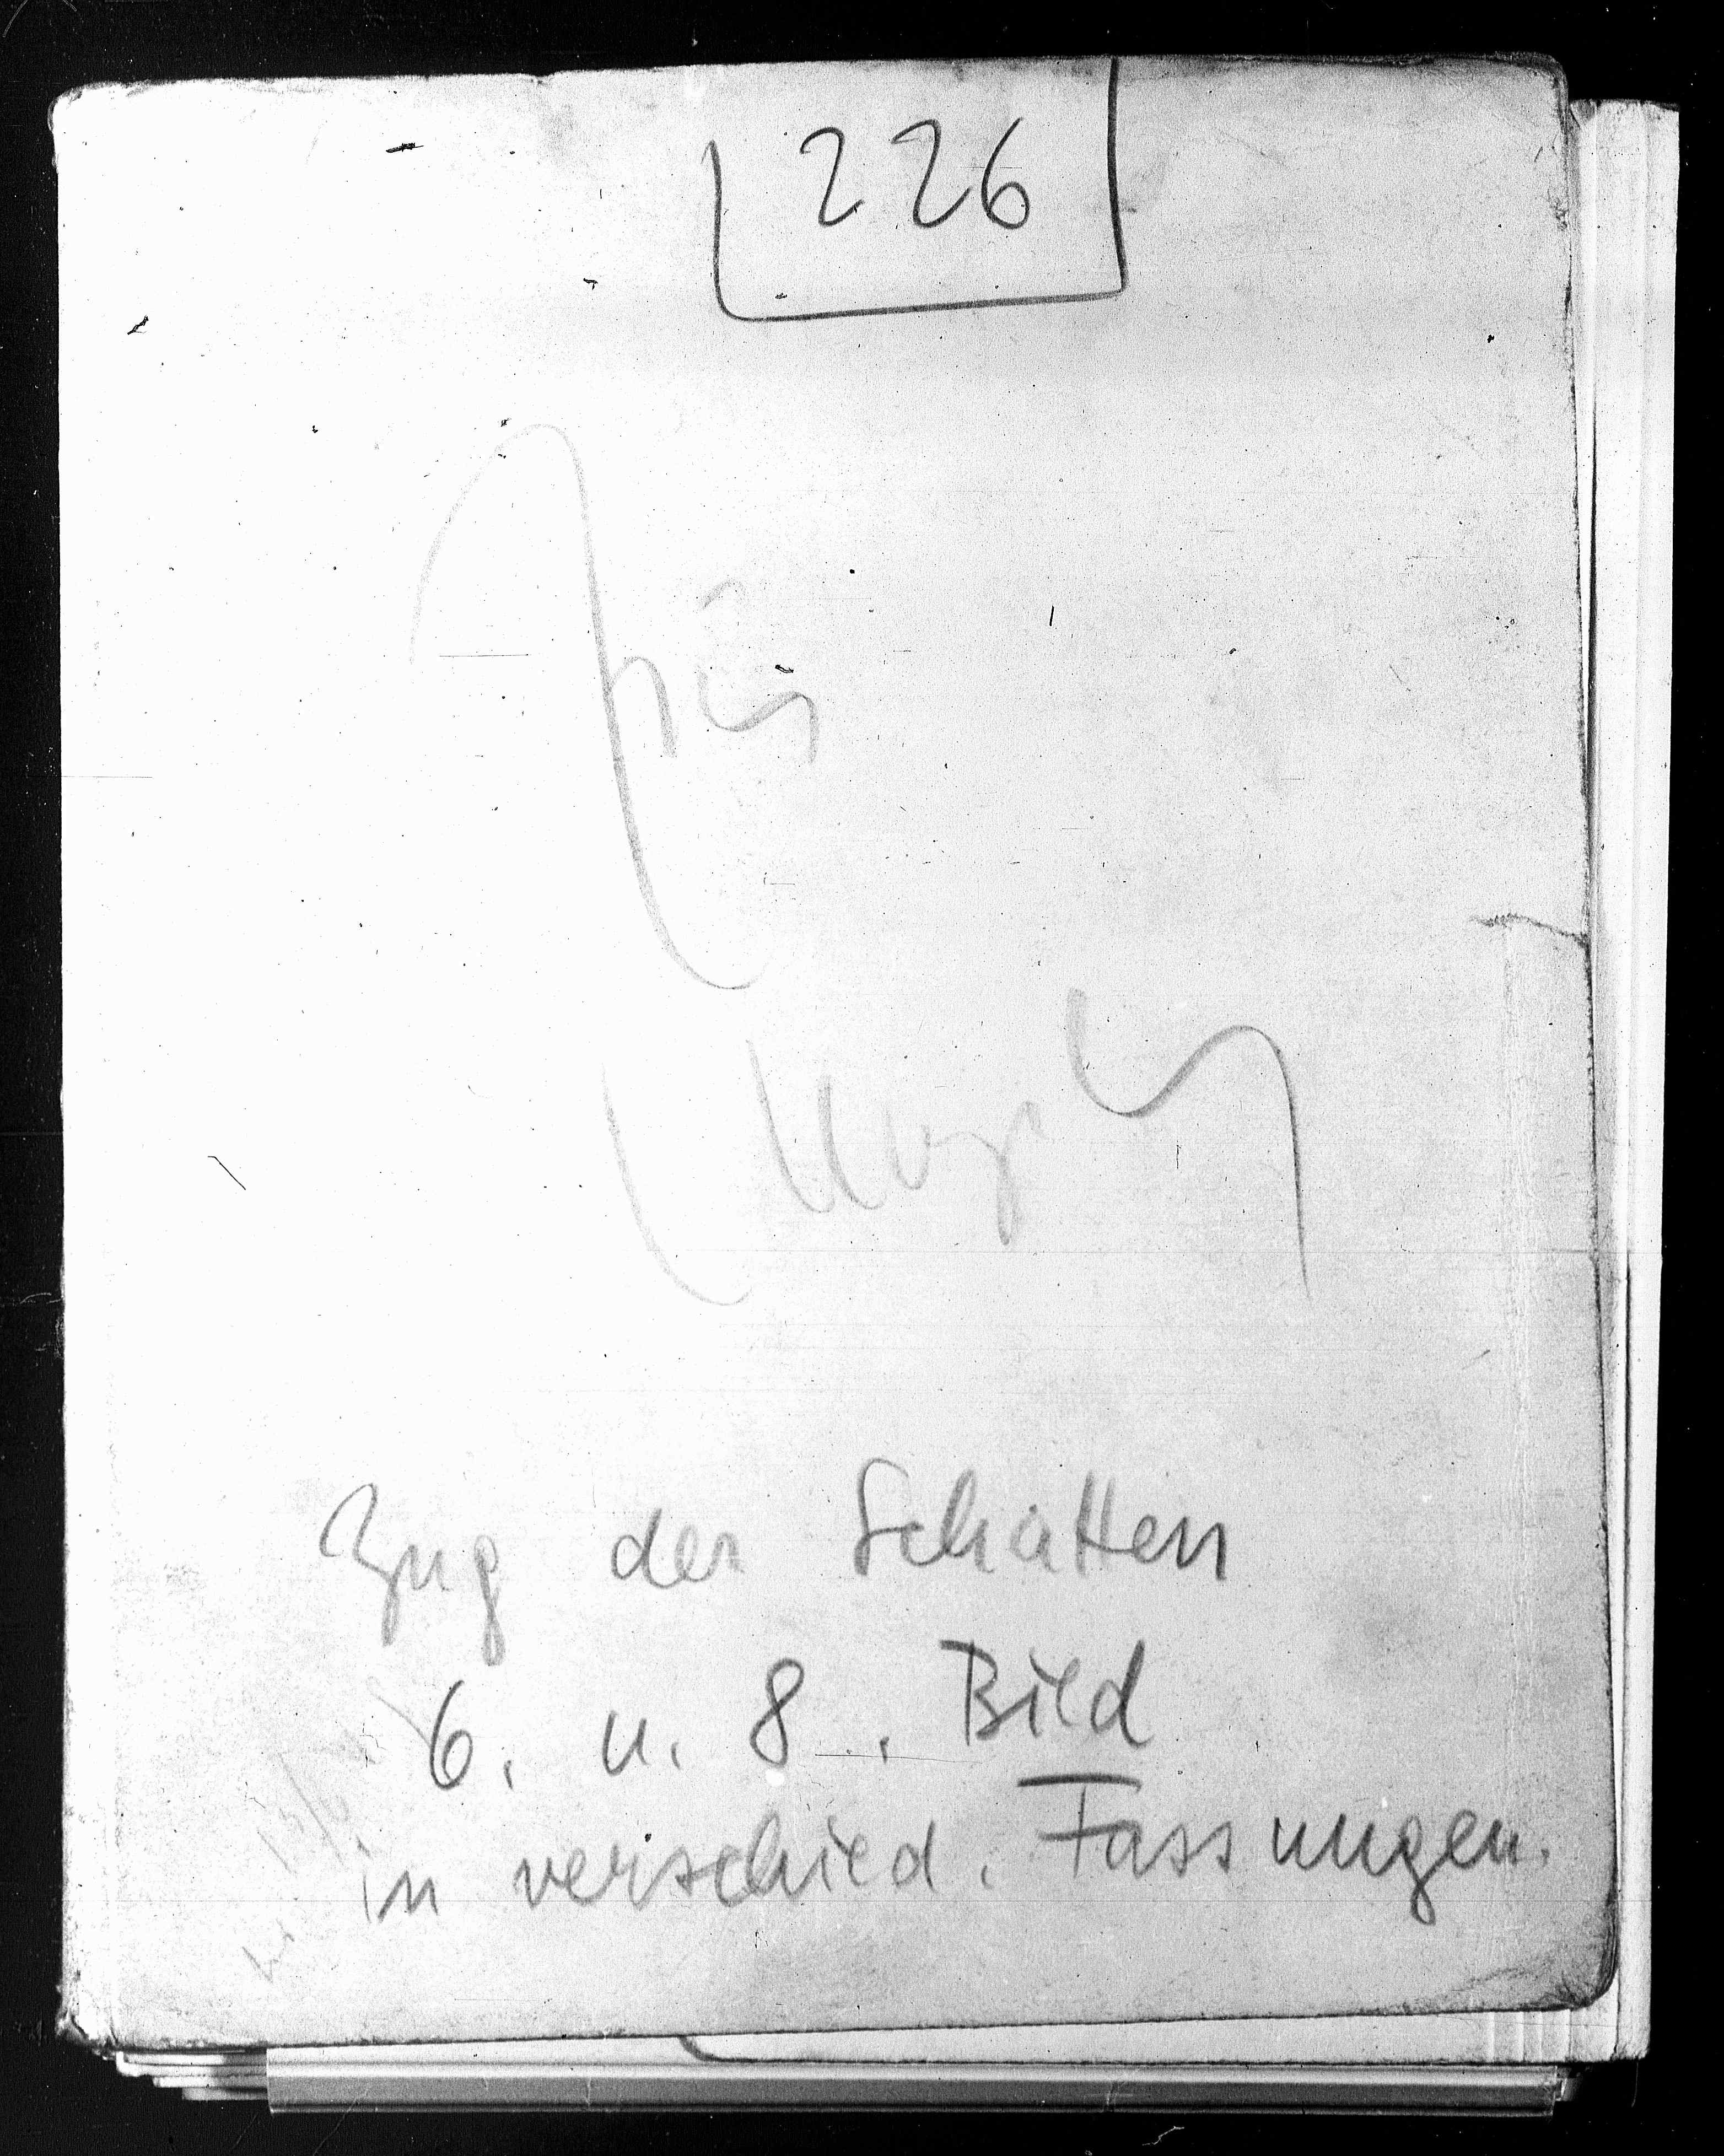 226
Zug der Schatten
6. u. 8. Bild
in verschied. Fassungen.